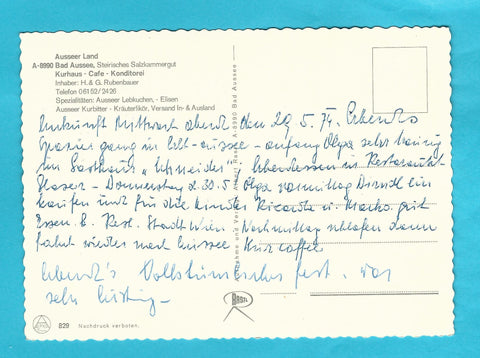 Ausseer Land
A-8990 Bad Aussee, Steirisches Salzkammergut
Kurhaus - Cafe - Konditorei
Inhaber: H. & G. Rubenbauer
Telefon 06152/2426
Spezialitäten: Ausseer Lebkuchen, - Elisen
Ausseer Kurbitter - Kräuterlikör, Versand In- & Ausland
Ankunft Mittwoch abend den 29.5.74. Abends
Spaziergang in Alt-aussee - anfang Olga sehr traurig
im Gasthaus "Schneider". Abendessen in Restaurant
- Donnerstag d. 30.5 Olga vormittag Dirndl ein
kaufen und für die Kinder Ricarda u. Marko. gut
Essen. B. Rest. Stadt Wien. Nachmittag schlafen dann
fahrt wieder nach aussee Kurcaffee
abend's Volkstümliches fest. war
sehr lustig -
A-8990 Bad Aussee
BASTL
829 Nachdruck verboten.